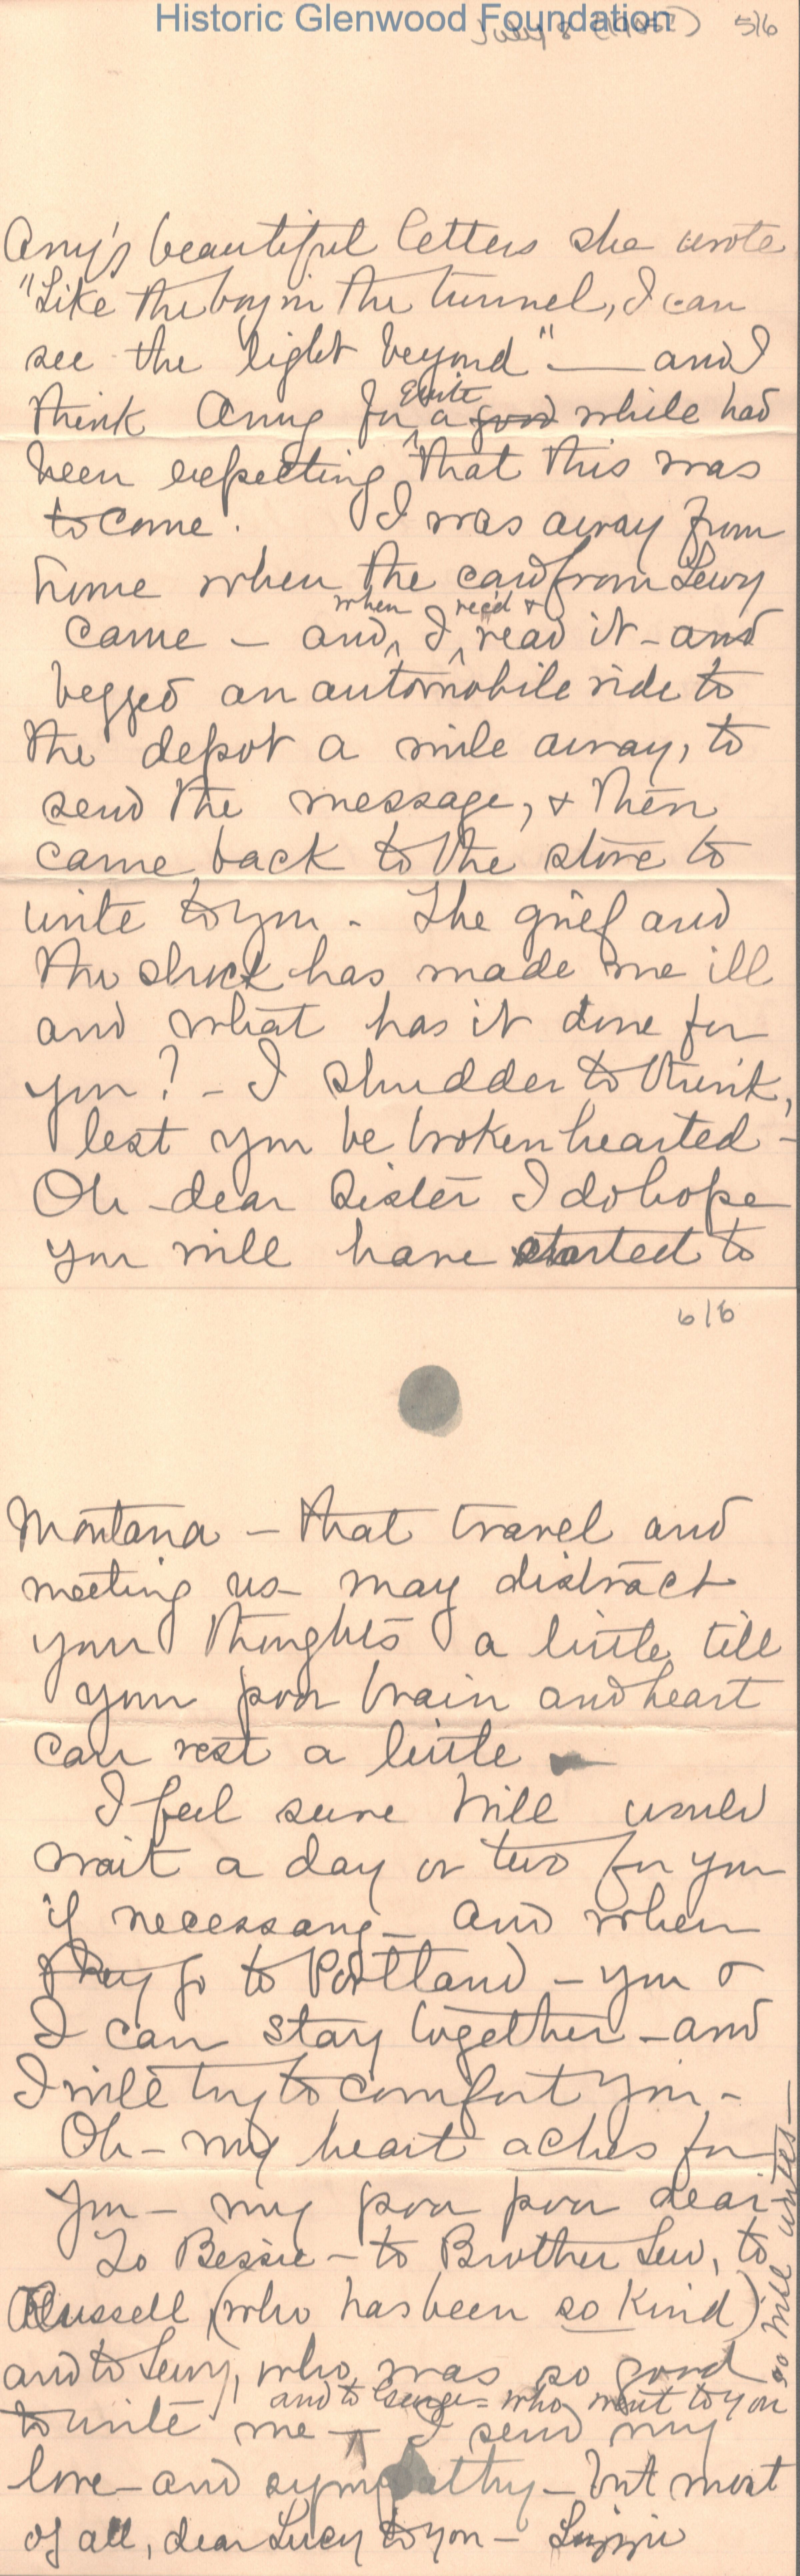 Historic Glenwood Foundation
July 8 5/6
Amy's beautiful letters she wrote
"Like the boy in the tunnel, I can
see the light beyond" — and I
Quite
think Amy for a good while had
been expecting that this was
to come. I was away from
home when the card from Lewy
when rec'd &
came - and, I, read it - and
begged an automobile ride to
the depot a mile away, to
send the message, & then
came back to the store to
write to you - The grief and
the shock has made me ill
and what has it done for
you? - I shudder to think,
lest you be broken hearted -
Oh - dear Sister I do hope
you will have started to
6/6
Montana - that travel and
meeting us - may distract
your thoughts a little till
your poor brain and heart
can rest a little -
I feel sure Will would
wait a day or two for you
if necessary - and when
they go to Portland - you &
I can stay together - and
I will try to comfort you -
Oh - my heart aches for
you - my poor poor dear -
To Bessie - to Brother Lew, to
Russell (who has been so kind)
and to Lewy, who was so good
and to - who went to you
to write me - I send my
love - and sympathy - but most
of all, dear Lucy to you - Lizzie
so Will writes -